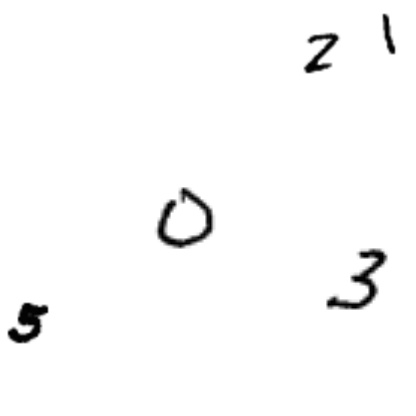 2 1
0
3
5